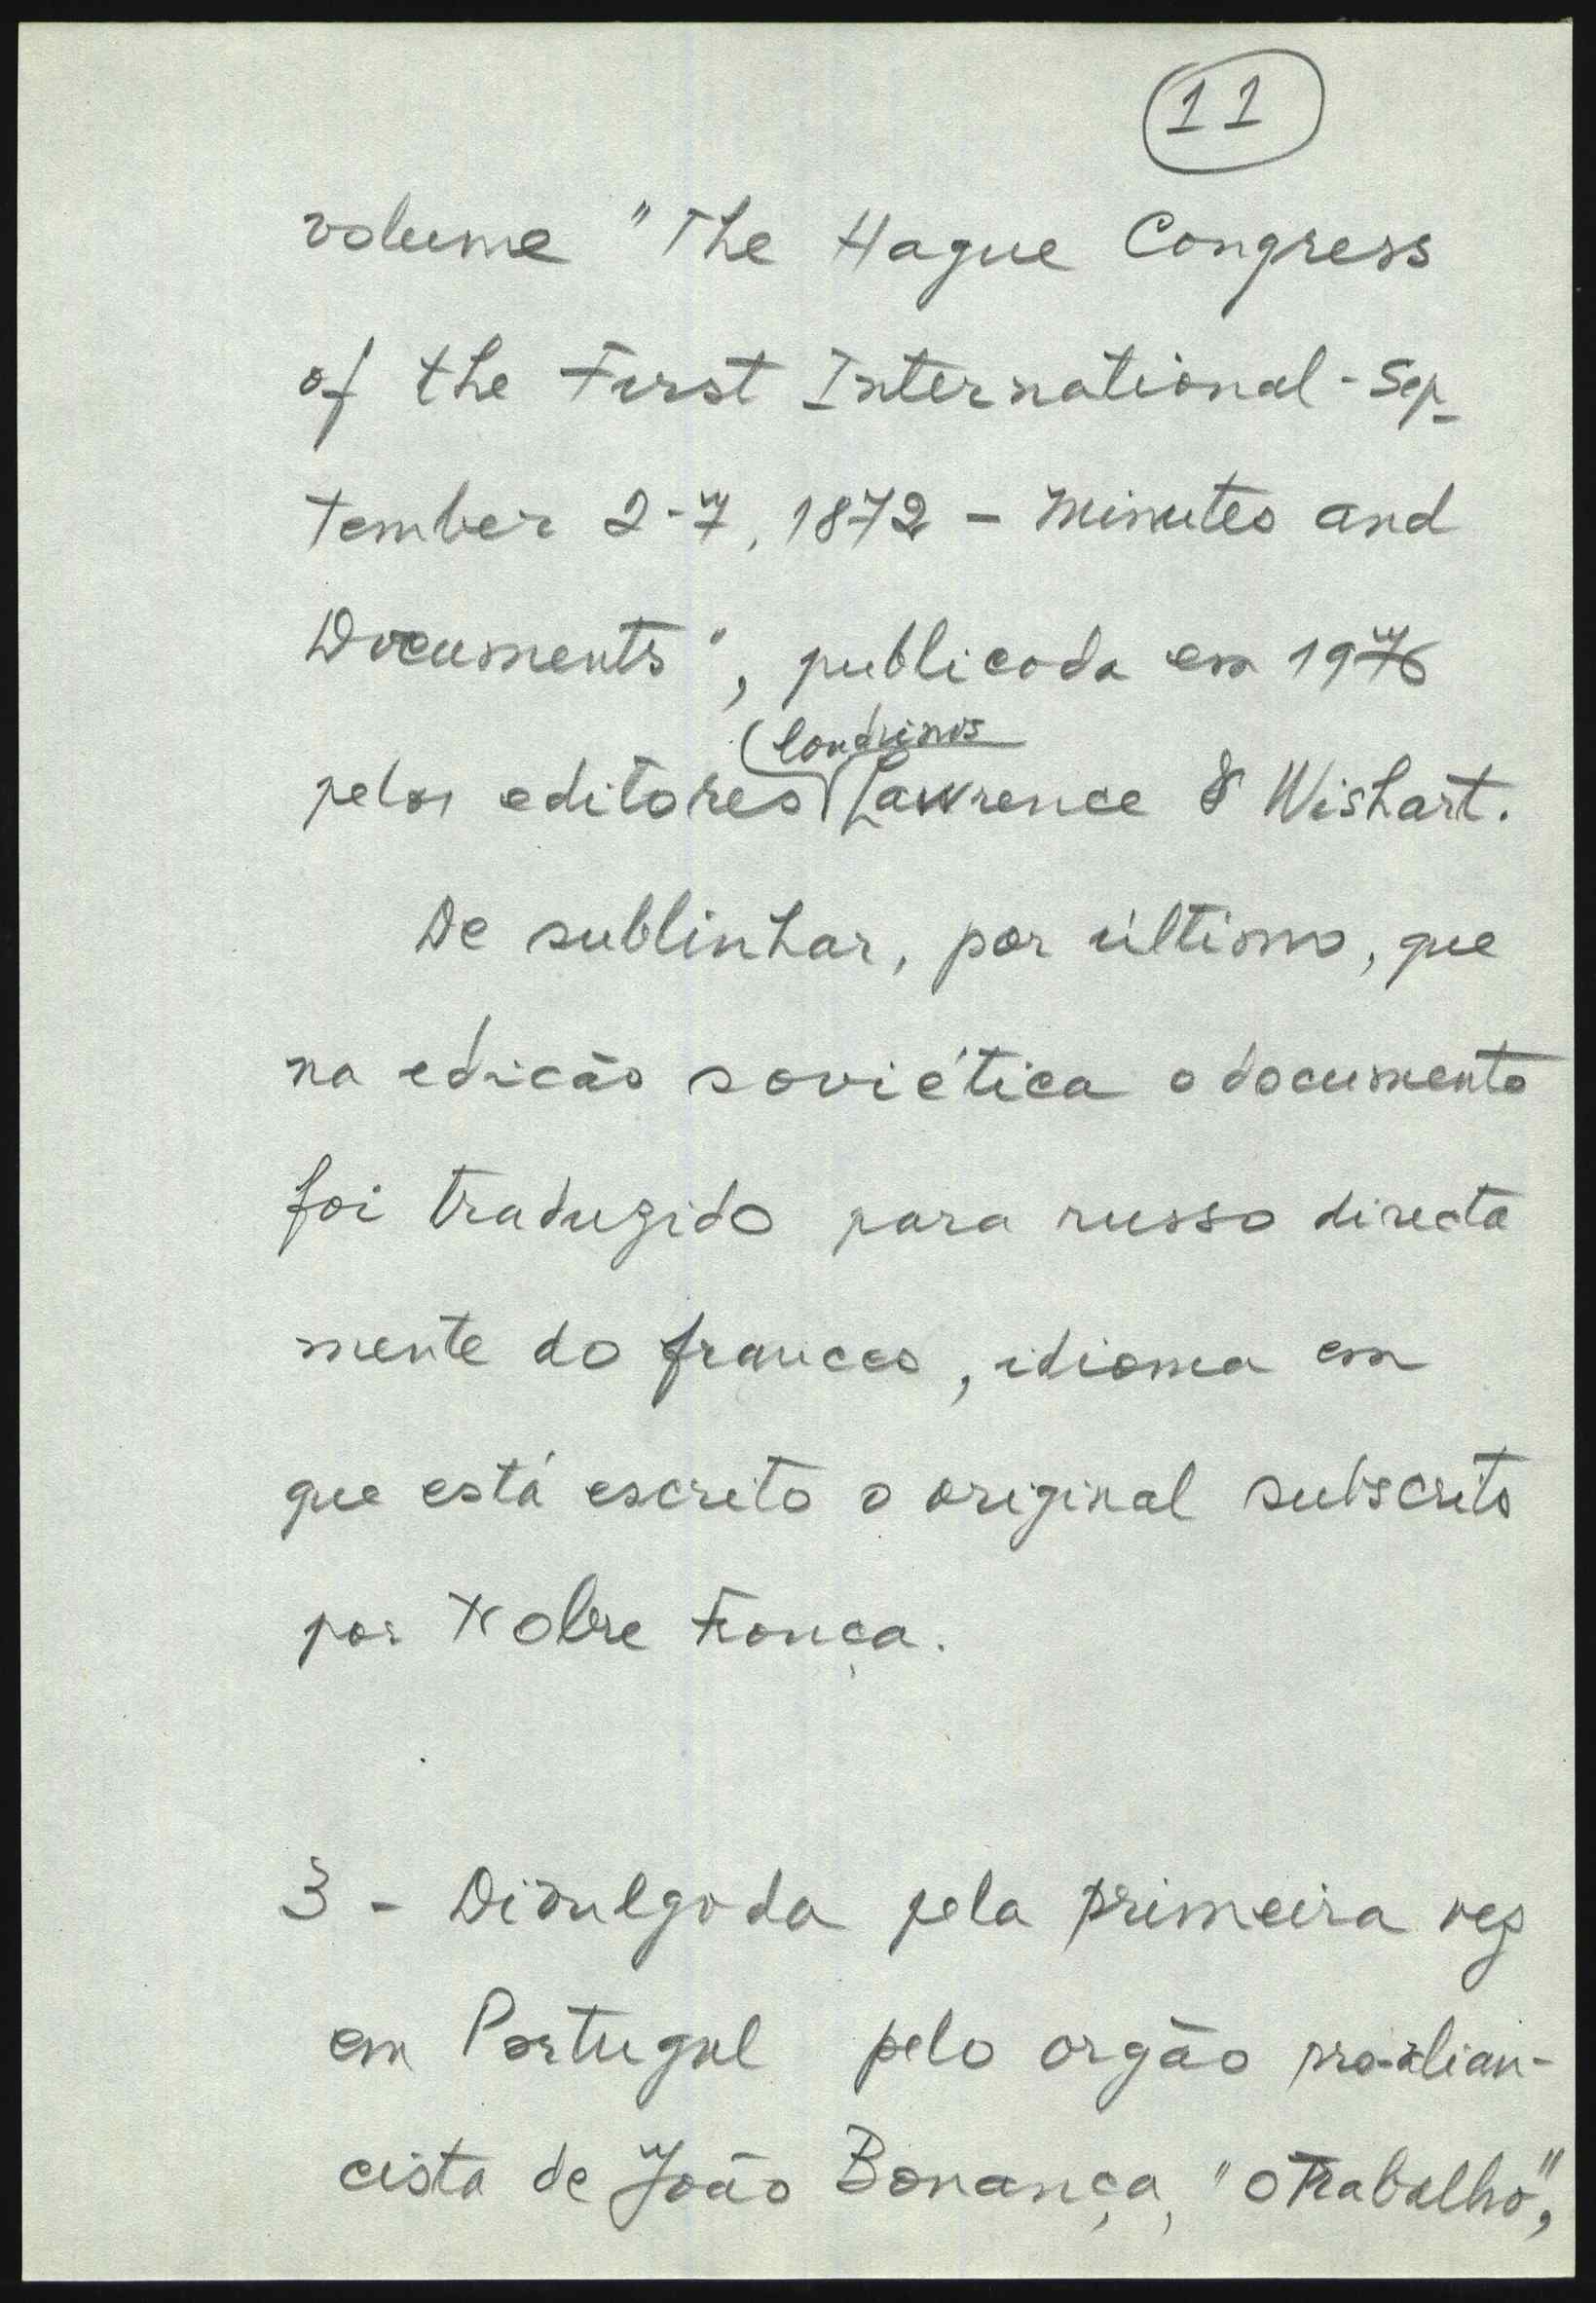 11
volume "The Hague Congress
of the First International - Sep-
tember 2-7, 1872 - Minutes and
Documents", publicada em 1976
londrinos
pelos editores Lawrence & Wishart.
De sublinhar, por último, que
na edicão soviética o documento
foi traduzido para russo directa
mente do frances, idioma em
que está escrito o original subscrito
por Nobre França.
3 - Divulgada pela primeira vez
em Portugal pelo orgão pro-alian-
cista de João Bonança, "O Trabalho",